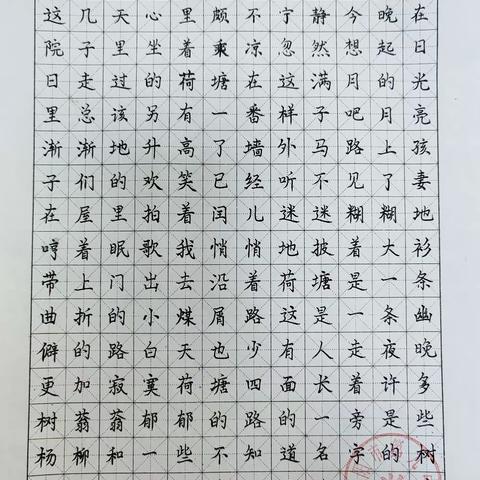 这几天心里颇不宁静今晚在
院子里坐着乘凉忽然想起日
日走过的荷塘在这满月的光
里总该另有一番样子吧月亮
渐渐地升高了墙外马路上孩
子们的欢笑已经听不见了妻
在屋里拍着闰儿迷迷糊糊地
哼着眠歌我悄悄地披着大衫
带上门出去沿着荷塘是一条
曲折的小煤屑路这是一条幽
僻的路白天也少有人走夜晚
更加寂寞荷塘四面长着许多
树蓊蓊郁郁的路的一旁是些
杨柳和一些不知道名字的树